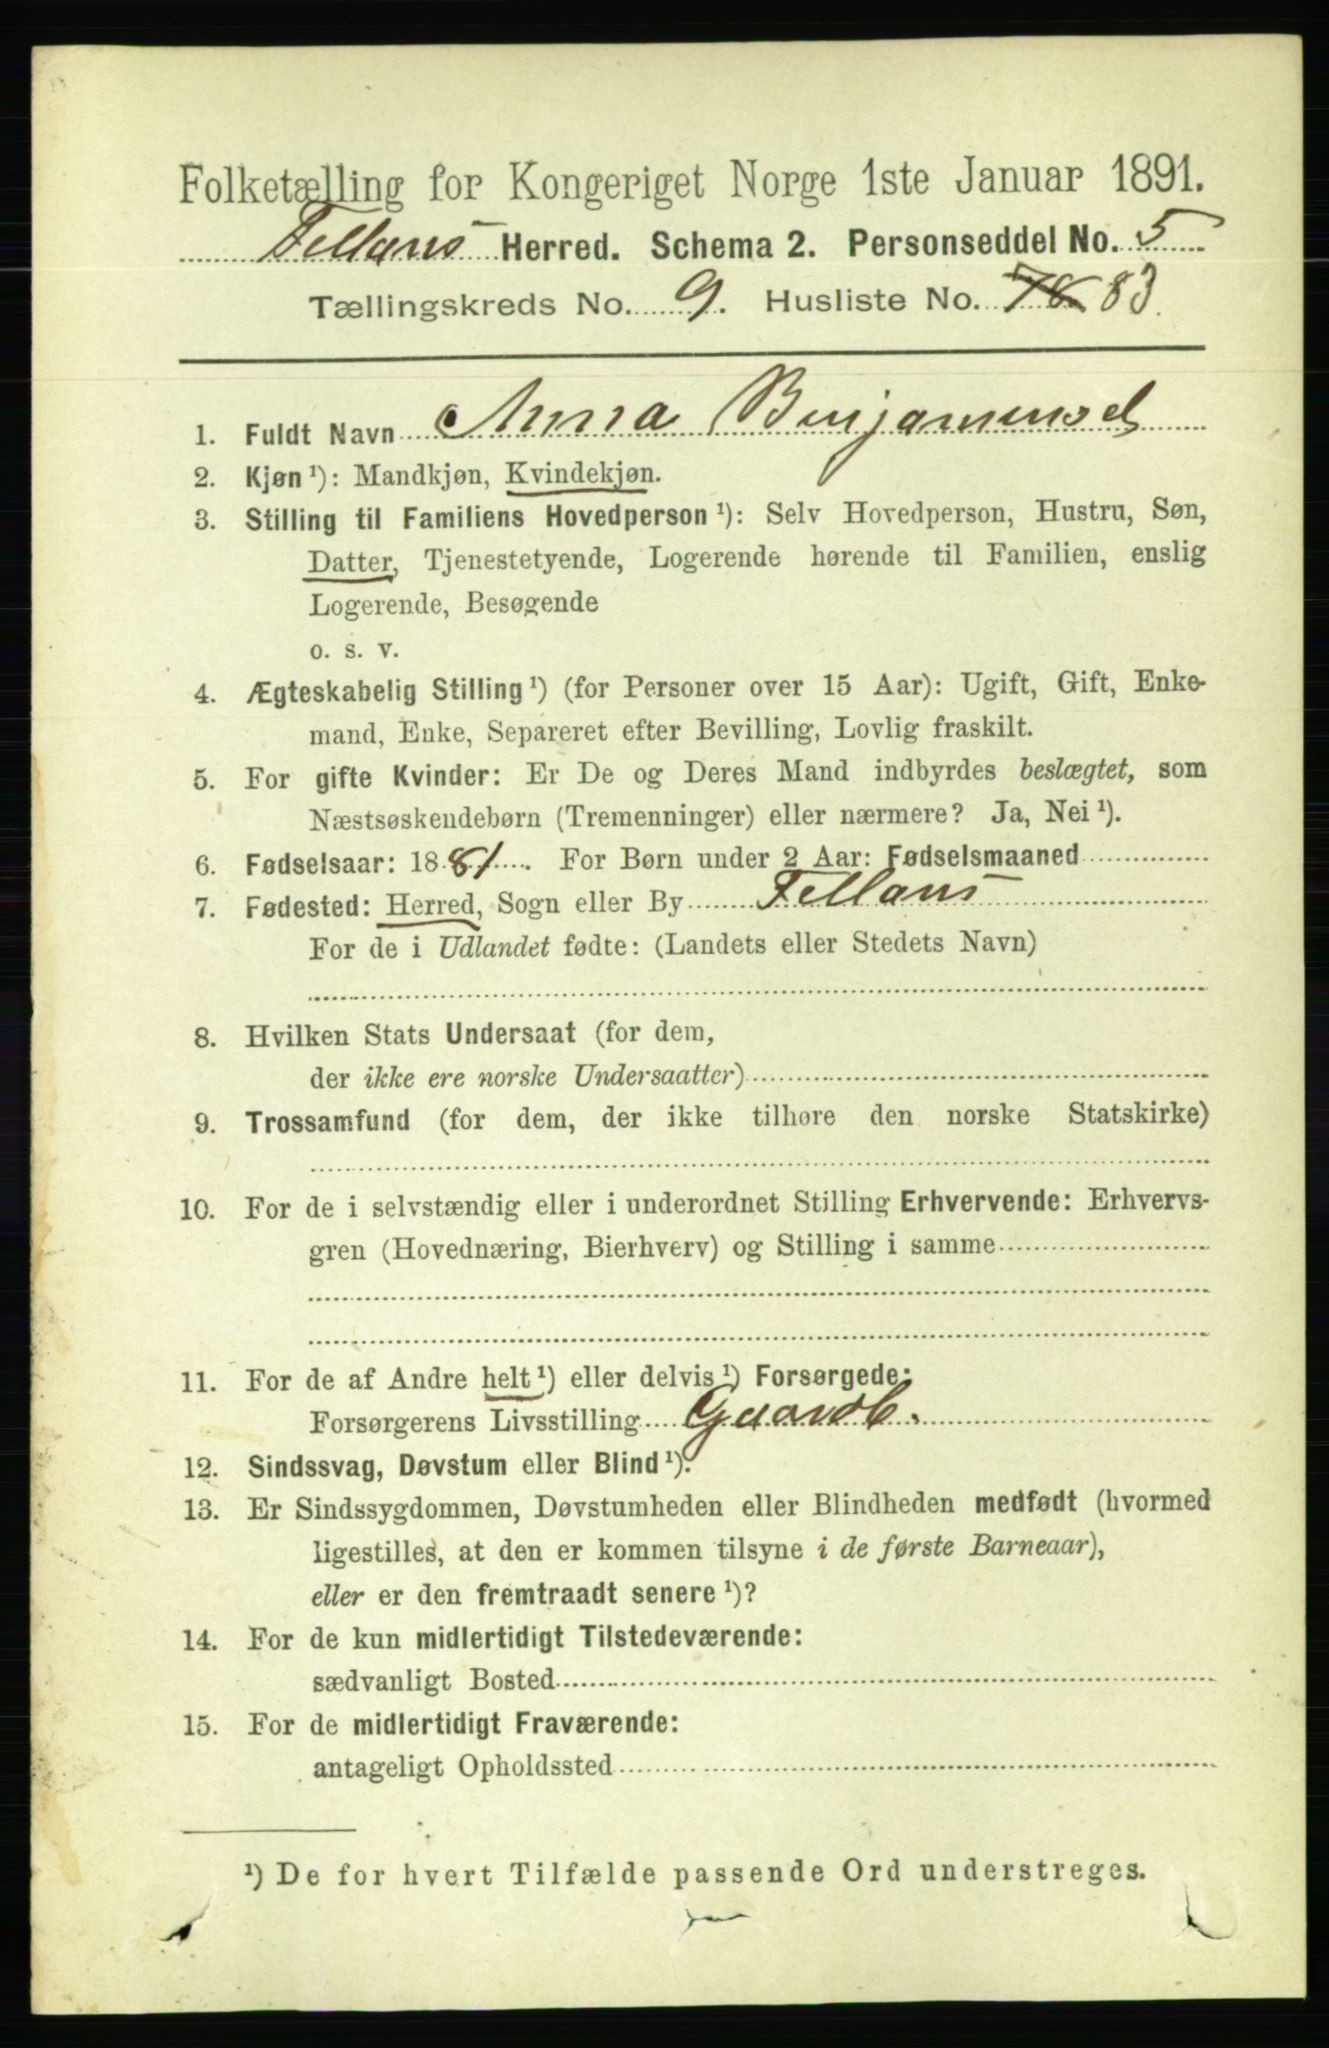 Folketælling for Kongeriget Norge 1ste Januar 1891.
Fillans Herred. Schema 2. Personseddel No. 5
Tællingskreds No. 9. Husliste No. 78 83.
1. Fuldt Navn Anna Benjaminsd
2. Kjøn ¹): Mandkjøn, Kvindekjøn.
3. Stilling til Familiens Hovedperson ¹): Selv Hovedperson, Hustru, Søn,
Datter, Tjenestetyende, Logerende hørende til Familien, enslig
Logerende, Besøgende
o. s. v.
4. Ægteskabelig Stilling ¹) (for Personer over 15 Aar): Ugift, Gift, Enke-
mand, Enke, Separeret efter Bevilling, Lovlig fraskilt.
5. For gifte Kvinder: Er De og Deres Mand indbyrdes beslægtet, som
Næstsøskendebørn (Tremenninger) eller nærmere? Ja, Nei ¹).
6. Fødselsaar: 1881. For Børn under 2 Aar: Fødselsmaaned
7. Fødested: Herred, Sogn eller By Fillans
For de i Udlandet fødte: (Landets eller Stedets Navn)
8. Hvilken Stats Undersaat (for dem,
der ikke ere norske Undersaatter)
9. Trossamfund (for dem, der ikke tilhøre den norske Statskirke)
10. For de i selvstændig eller i underordnet Stilling Erhvervende: Erhvervs-
gren (Hovednæring, Bierhverv) og Stilling i samme
11. For de af Andre helt ¹) eller delvis ¹) Forsørgede:
Forsørgerens Livsstilling Gaardb.
12. Sindssvag, Døvstum eller Blind ¹).
13. Er Sindssygdommen, Døvstumheden eller Blindheden medfødt (hvormed
ligestilles, at den er kommen tilsyne i de første Barneaar),
eller er den fremtraadt senere ¹)?
14. For de kun midlertidigt Tilstedeværende:
sædvanligt Bosted
15. For de midlertidigt Fraværende:
antageligt Opholdssted
¹) De for hvert Tilfælde passende Ord understreges.